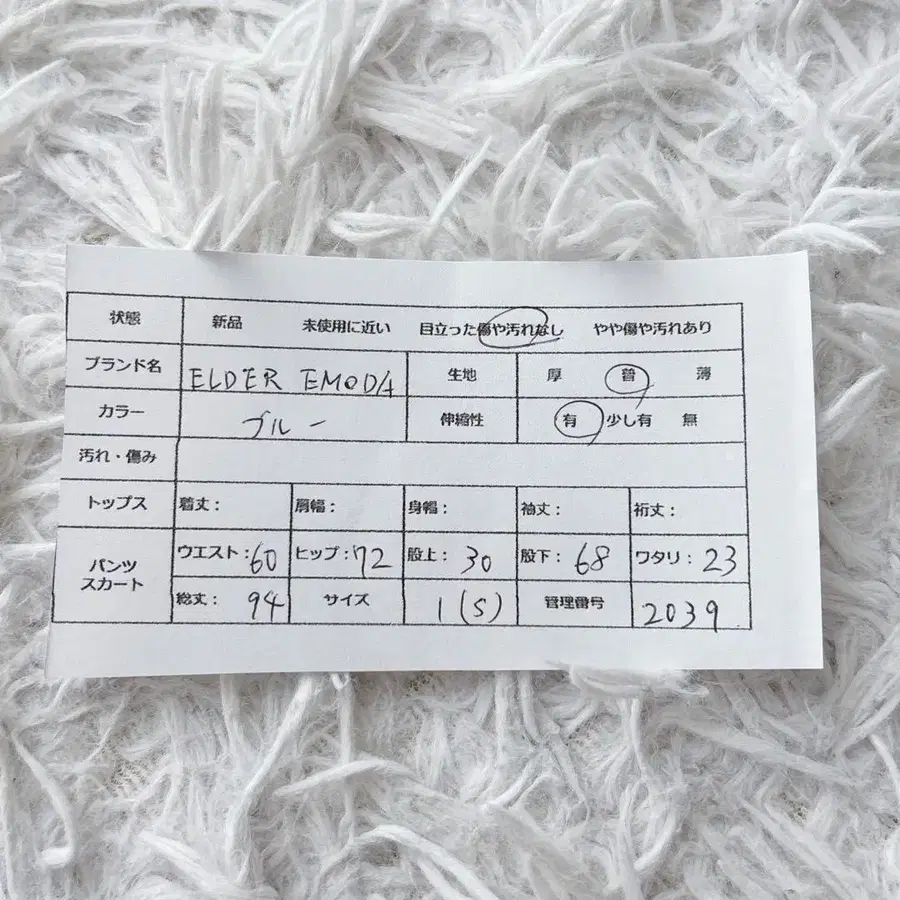 状態 新品 未使用に近い 目立った傷や汚れなし やや傷や汚れあり
ブランド名 ELDER EMODA 生地 厚 普 薄
カラー ブルー 伸縮性 有 少し有 無
汚れ・傷み
トップス 着丈： 肩幅： 身幅： 袖丈： 裄丈：
パンツ スカート ウエスト：60 ヒップ：72 股上：30 股下：68 ワタリ：23
総丈：94 サイズ 1(S) 管理番号 2039